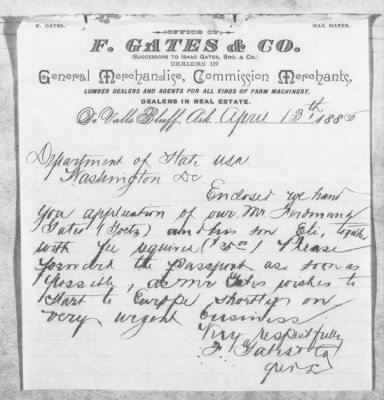 F. GATES.
MAX MAYER.
OFFICE OF
F. GATES & CO.
(SUCCESSORS TO ISAAC GATES, BRO. & CO.)
DEALERS IN
General Merchandise, Commission Merchants,
LUMBER DEALERS AND AGENTS FOR ALL KINDS OF FARM MACHINERY.
DEALERS IN REAL ESTATE.
De Valls Bluff, Ark. April 13th 1885
Department of State USA
Washington DC
Enclosed we hand
you application of our Mr Ferdinand
Gates (Goetz) and his son Eli, together
with fee required ($5.00) Please
forward the Passport as soon as
possible, as Mr Gates wishes to
Start to Europe shortly on
very urgent business
Very respectfully
F. Gates & Co